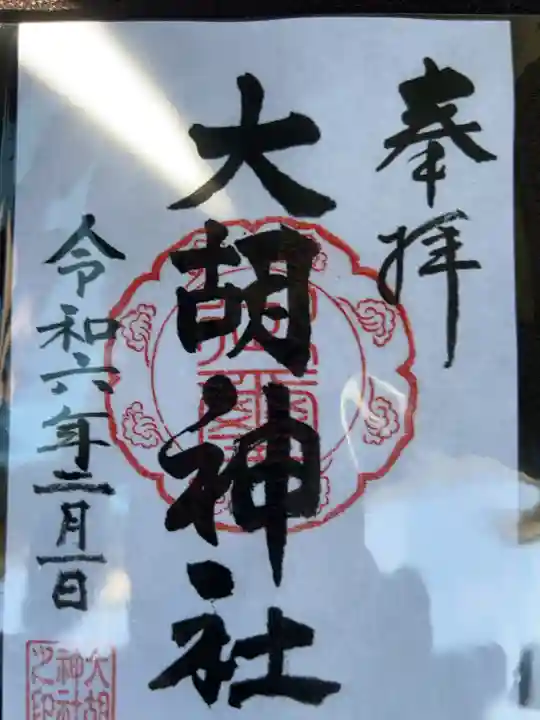 奉拝
大胡神社
令和六年二月一日
大胡
神社
之印